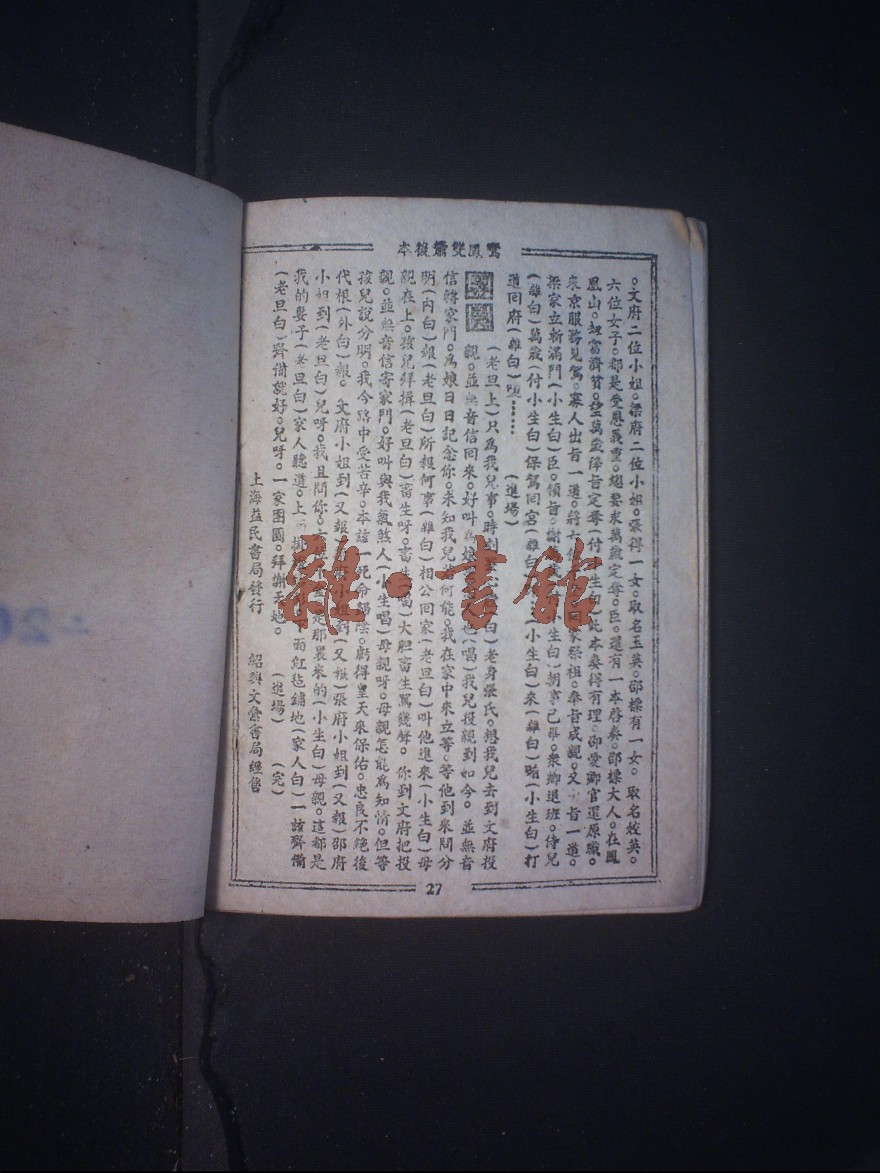 鸞鳳雙簫後本
。文府二位小姐。梁府二位小姐。張得一女。取名玉英。邵標有一女。取名姣英。
六位女子。都是受恩義重。總要求萬歲定奪。臣。還有一本啓奏。邵標大人。在鳳
凰山。刼富濟貧。望萬歲降旨定奪(付小生白)此本奏得有理。卲愛卿官還原職。
來京服務見駕。寡人出旨一道。將六位 回家祭祖。奉旨成親。又 旨一道。
梁家立斬滿門(小生白)臣。領旨。謝 小生白)朝事已畢。衆卿退班。侍兒
(雜白)萬歲(付小生白)保駕回宮(雜白 (小生白)來(雜白)喳(小生白)打
道回府(雜白)喳……(進場)
(老旦上)只為我兒事。時刻 心 白)老身張氏。想我兒去到文府投
親。並無音信回來。好叫為娘 也(唱)我兒投親到如今。並無音
信轉家門。為娘日日記念你。未知我兒 何能。我在家中來立等。等他到來問分
明(內白)報(老旦白)所報何事(雜白)相公回家(老旦白)叫他進來(小生白)母
親在上。孩兒拜揖(老旦白)畜生呀。畜生 唱)大胆畜生罵幾聲。你到文府把投
親。並無音信寄家門。好叫與我氣煞人(小生唱)母親呀。母親怎能為知情。但等
孩兒說分明。我今路中受苦辛。本該一死命歸陰。虧得皇天來保佑。忠良不絕後
代根(外白)報。文府小姐到(又報 府小姐到(又報)張府小姐到(又報)邵府
小姐到(老旦白)兒呀。我且問你。六位 是那裏來的(小生白)母親。這都是
我的妻子(老旦白)家人聽道。上 掛 下面紅毡鋪地(家人白)一該齊備
(老旦白)齊備就好。兒呀。一家團圓。拜謝天地。(進場)(完)
上海益民書局發行 紹興文彙書局經售
27
雜·書館